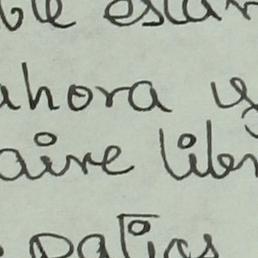 ble estar
ahora y
aire libr
patios